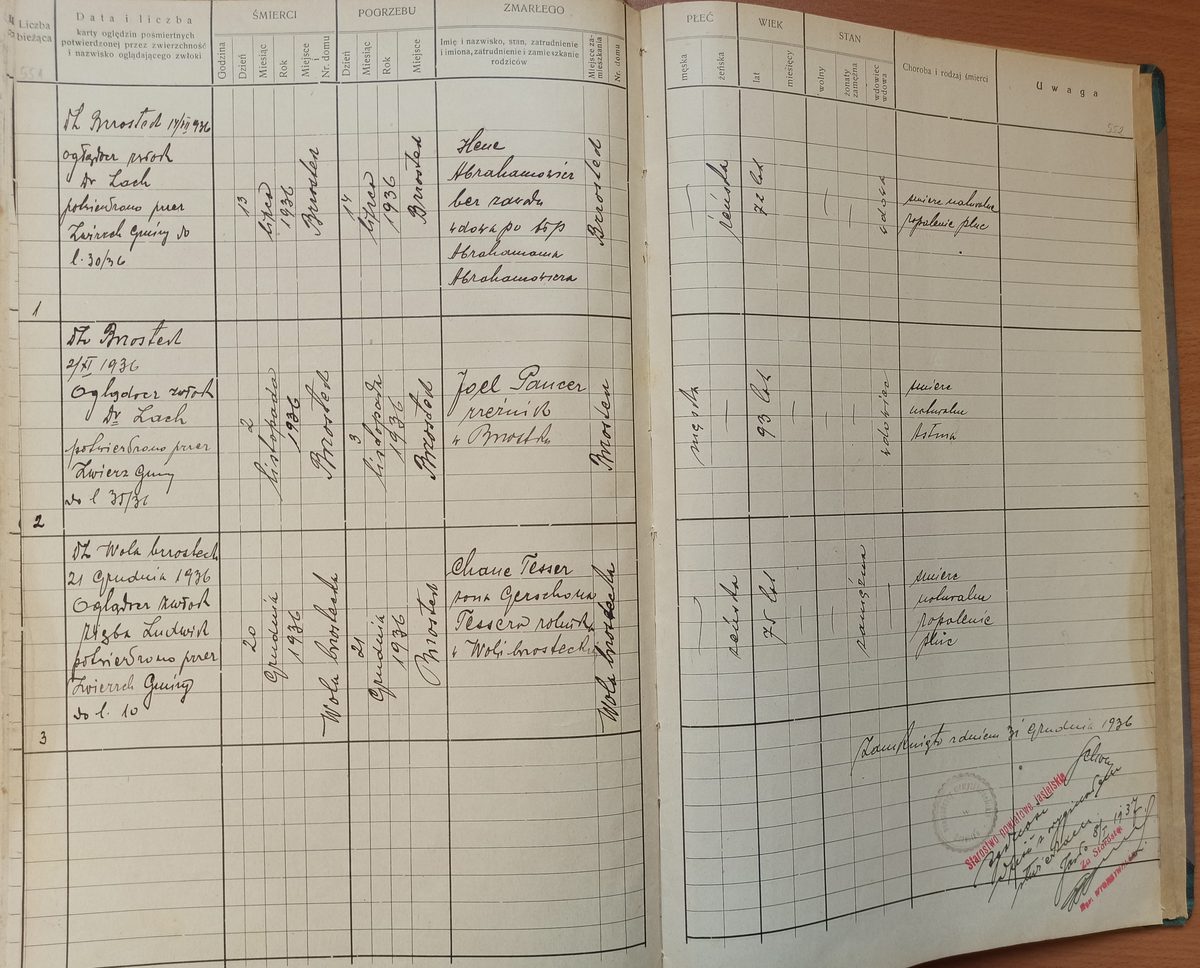 Liczba bieżąca
Data i liczba
karty oględzin pośmiertnych
potwierdzonej przez zwierzchność
i nazwisko oglądającego zwłoki
ŚMIERCI
Godzina
Dzień
Miesiąc
Rok
Miejsce i Nr. domu
POGRZEBU
Dzień
Miesiąc
Rok
Miejsce
ZMARŁEGO
Imię i nazwisko, stan, zatrudnienie
i imiona, zatrudnienie i zamieszkanie
rodziców
Miejsce zamieszkania
Nr. domu
PŁEĆ
męska
żeńska
WIEK
lat
miesięcy
STAN
wolny
żonaty zamężna
wdowiec wdowa
Choroba i rodzaj śmierci
Uwaga
551
552
1
Dt Brzostek 14/VII 936
oglądacz zwłok
Dr Lach
potwierdzono przez
Zwierzch Gminy do
l. 30/36
13
lipca
1936
Brzostek
14
lipca
1936
Brzostek
Hene
Abrahamowicz
bez zawodu
wdowa po śp
Abrahamama
Abrahamowicza
Brzostek
—
żeńska
72 lat
—
—
wdowa
śmierć naturalna
zapalenie płuc
2
Dt Brzostek
2/XI 1936
Oglądacz zwłok
Dr Lach
potwierdzono przez
Zwierz Gminy
do l 35/36
2
listopada
1936
Brzostek
3
listopada
1936
Brzostek
Joel Pancer
rzeźnik
w Brzostku
Brzostek
męska
—
93 lat
—
—
wdowiec
śmierć
naturalna
Astma
3
Dt Wola brzosteck
21 Grudnia 1936
Oglądacz zwłok
Zięba Ludwik
potwierdzono przez
Zwierzch Gminy
do l. 10
20
Grudnia
1936
Wola brzostecka
21
Grudnia
1936
Brzostek
Chane Tesser
żona Gerschona
Tessera rolnik
w Woli brzosteckiej
Wola brzostecka
—
żeńska
75 lat
—
zamężna
—
śmierć
naturalna
zapalenie
płuc
Zamknięto z dniem 31 Grudnia 1936
Starostwo powiatowe Jasielskie
Zgodność
z oryginałem
stwierdzam
Jasło 8/I 1937
Za Starostę
Mgr.